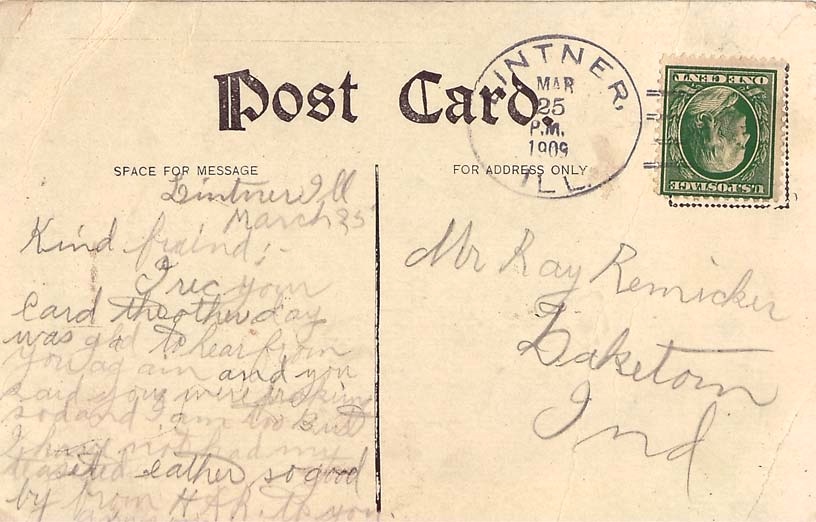 Post Card.
LINTNER,
MAR
25
P.M.
1909
ILL.
ONE CENT
U.S. POSTAGE
SPACE FOR MESSAGE
FOR ADDRESS ONLY
Lintner Ill
March 25
Kind friend;-
I rec your
card the other day
was glad to hear from
you again and you
said you were
so and I am too But
I have not had my
eather so good
by from H.A.R. to you.
Mr Ray Remicker
Laketom
Ind